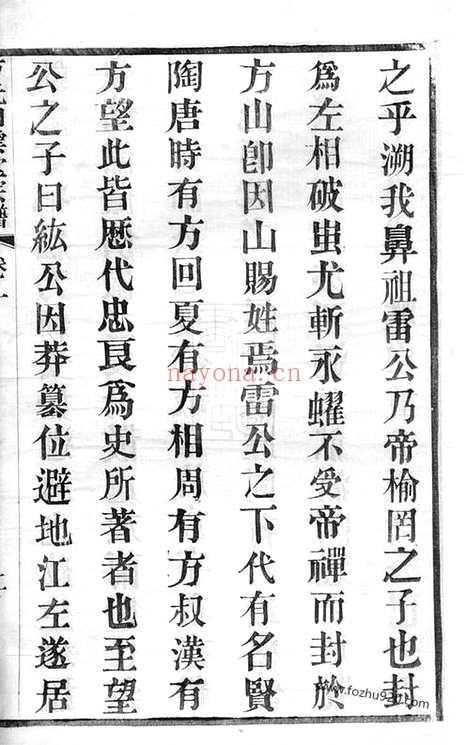 之乎溯我鼻祖雷公乃帝榆罔之子也封
爲左相破蚩尤斬永蠷不受帝禪而封於
方山卽因山賜姓焉雷公之下代有名賢
陶唐時有方回夏有方相周有方叔漢有
方望此皆歷代忠良爲史所著者也至望
公之子曰紘公因莽篡位避地江左遂居
nayona.cn
www.fozhu920.com